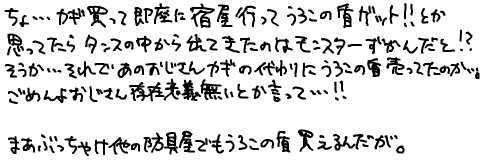 ちょ…カギ買って即座に宿屋行ってうろこの盾ゲット!!とか
思ってたらタンスの中から出てきたのはモンスターずかんだと!?
そうか…それであのおじさんカギの代わりにうろこの盾売ってたのか…。
ごめんよおじさん存在意義無いとか言って…!!
まあぶっちゃけ他の防具屋でもうろこの盾買えるんだが。